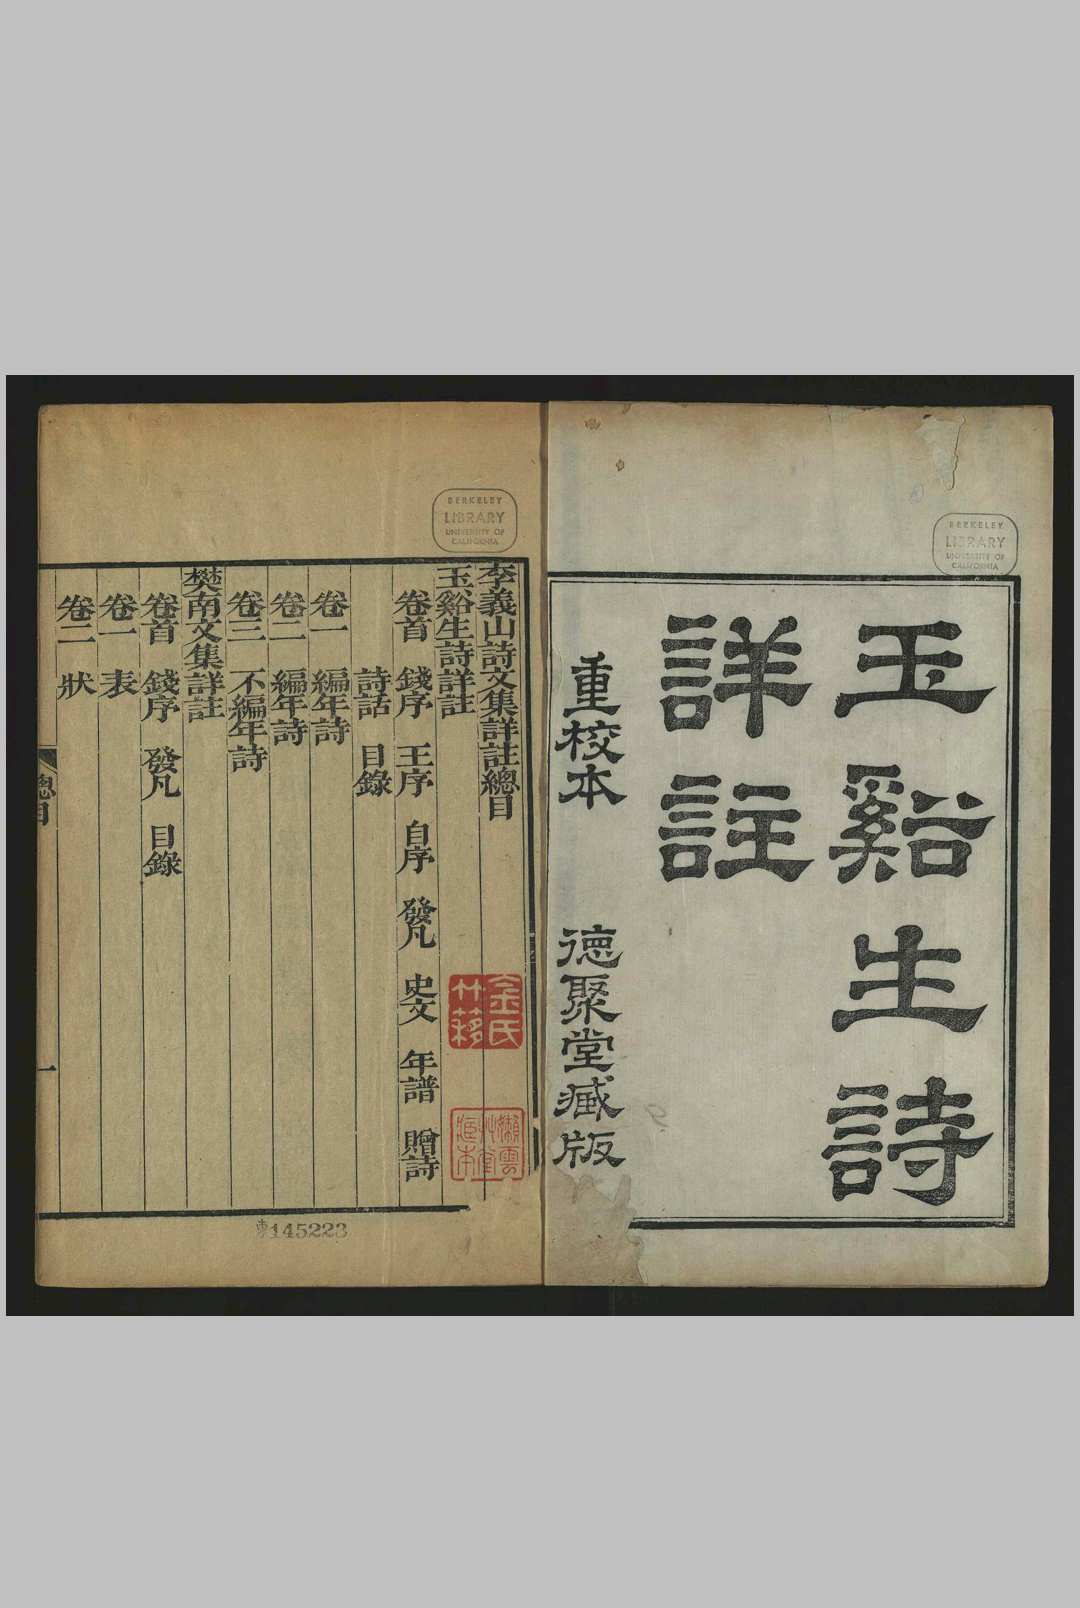 玉谿生詩
詳註
重校本 德聚堂藏版
BERKELEY
LIBRARY
UNIVERSITY OF
CALIFORNIA
BERKELEY
LIBRARY
UNIVERSITY OF
CALIFORNIA
李義山詩文集詳註總目
玉谿生詩詳註
卷首 錢序 王序 自序 發凡 史文 年譜 贈詩
詩話 目錄
卷一 編年詩
卷二 編年詩
卷三 不編年詩
樊南文集詳註
卷首 錢序 發凡 目錄
卷一 表
卷二 狀
總目
一
金氏
竹
145223